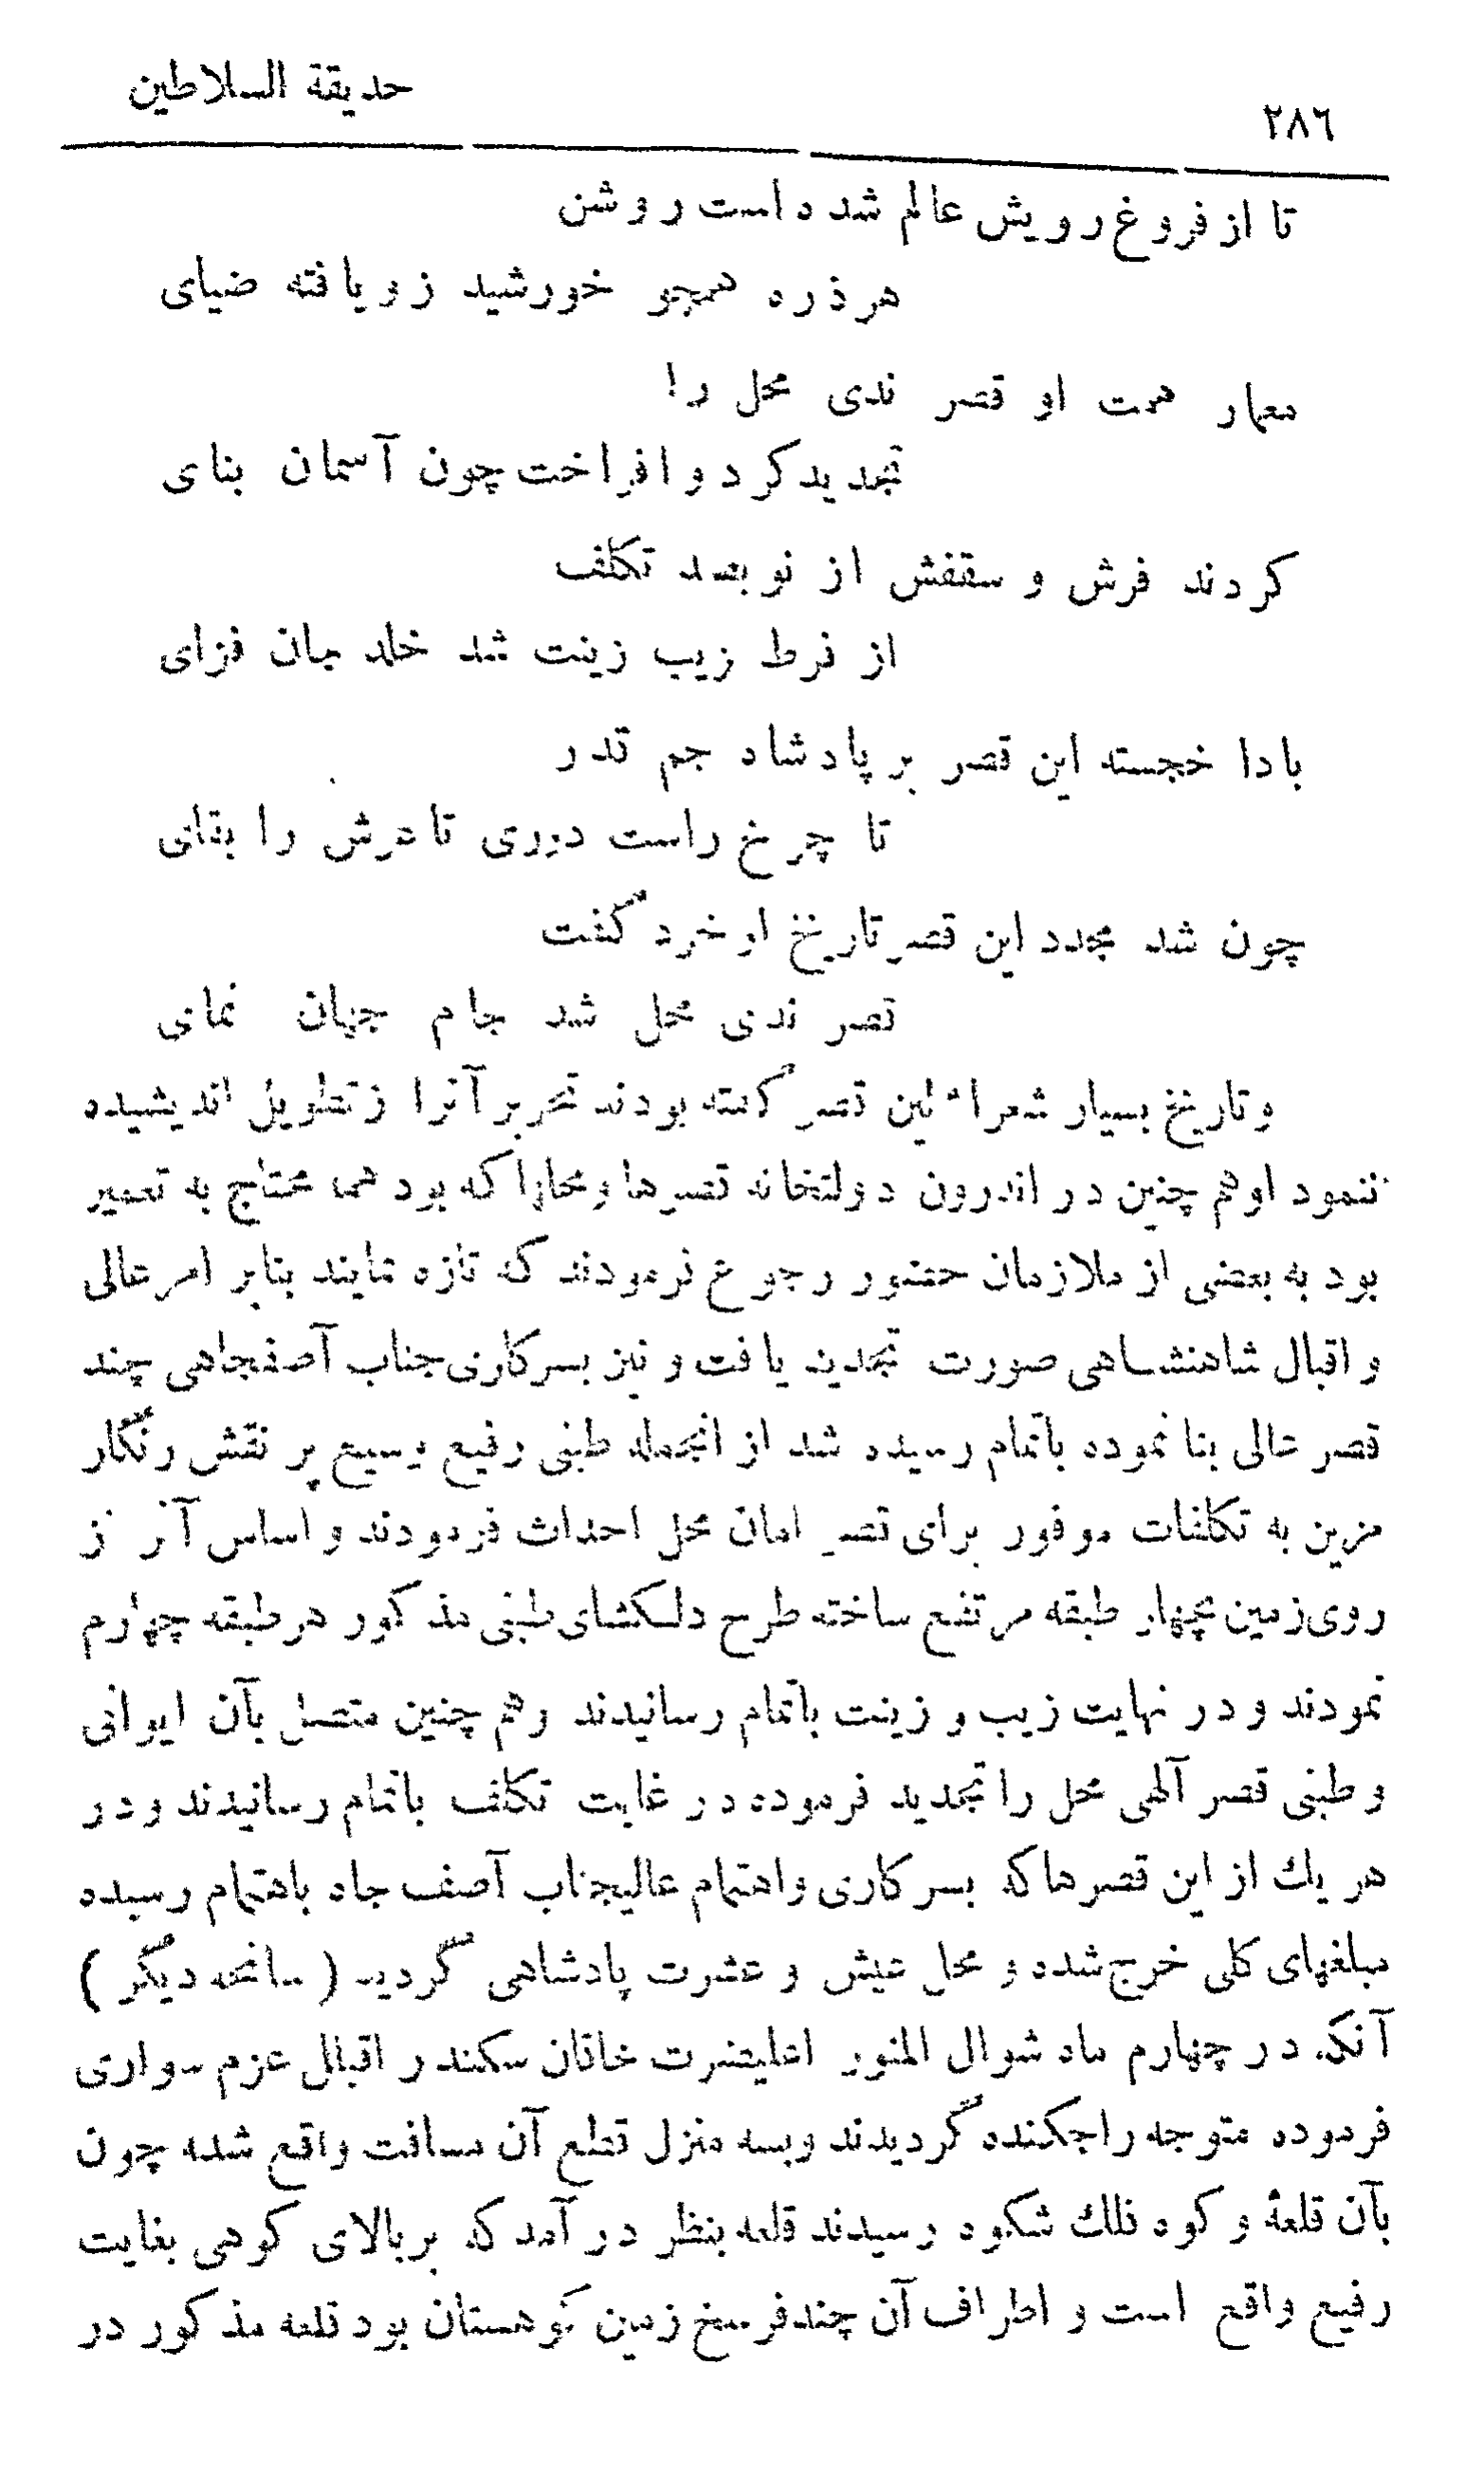 حديقة السلاطين
٢٨٦
تا از فروغ رویش عالم شده است روشن
هر ذره همچو خورشید زو یافته ضیای
معمار همت او قصر ندی محل را
تجدید کرد و افراخت چون آسمان بنای
کردند فرش و سقفش از نو بصد تکلف
از فرط زیب زینت شد خلد جان فزای
بادا خجسته این قصر بر پادشاه جم قدر
تا چرخ راست دوری تا عرش را بقائی
چون شد مجدد این قصر تاریخ او خرد گفت
قصر ندی محل شد جام جهان نمای
و تاریخ بسیار شعرا این قصر گفته بودند تحریر آنرا ز تطویل اندیشیده
ننمود او هم چنین در اندرون دولتخانه قصرها و محلها که بود همه محتاج به تعمیر
بود به بعضی از ملازمان حضور رجوع فرمودند که تازه نمایند بنابر امر عالی
و اقبال شاهنشاهی صورت تجدید یافت و نیز بسرکاری جناب آصفجاهی چند
قصر عالی بنا نموده باتمام رسیده شد از انجمله طبنی رفیع وسیع پر نقش رنگار
مزین به تکلفات موفور برای قصر امان محل احداث فرمودند و اساس آنر از
روی زمین بچهار طبقه مرتفع ساخته طرح دلکشای طبنی مذکور در طبقه چهارم
نمودند و در نهایت زیب و زینت باتمام رسانیدند و هم چنین متصل بآن ایوانی
و طبنی قصر آلهی محل را تجدید فرموده در غایت تکلف باتمام رسانیدند و در
هر یك از این قصرها که بسرکاری واهتمام عالیجناب آصف جاه باهتمام رسیده
مبلغهای کلی خرج شده و محل عیش و عشرت پادشاهی گردید ( سانحه دیگر )
آنکه در چهارم ماه شوال المنور اعلیحضرت خاقان سکندر اقبال عزم سواری
فرموده متوجه راجکنده گردیدند وبسه منزل قطع آن مسافت واقع شده چون
بآن قلعهٔ و کوه فلك شکوه رسیدند قلعه بنظر در آمد که بر بالای کوهی بغایت
رفیع واقع است و اطراف آن چند فرسخ زمین کوهستان بود قلعه مذکور در